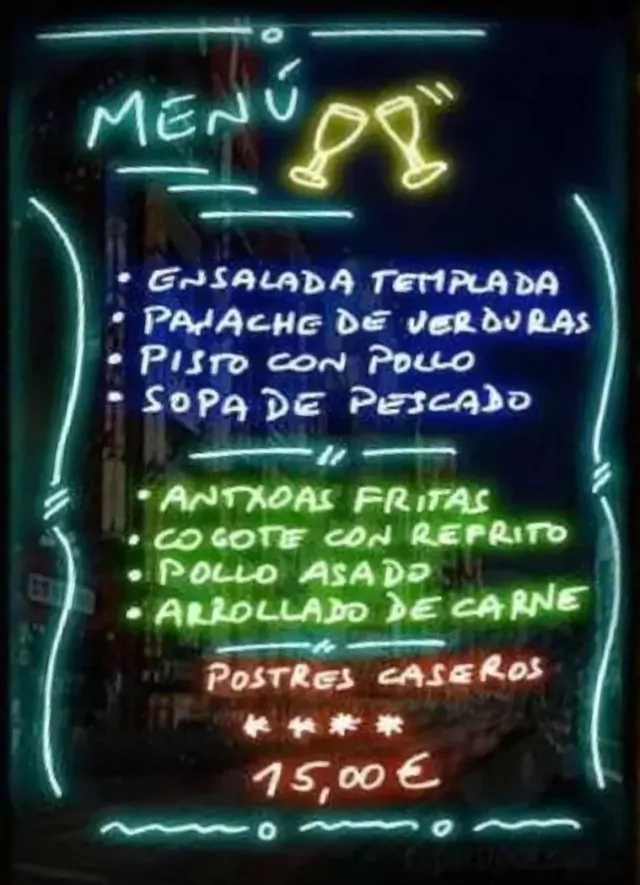 MENÚ
• ENSALADA TEMPLADA
• PANACHE DE VERDURAS
• PISTO CON POLLO
• SOPA DE PESCADO
• ANTXOAS FRITAS
• COGOTE CON REFRITO
• POLLO ASADO
• ARROLLADO DE CARNE
POSTRES CASEROS
****
15,00 €